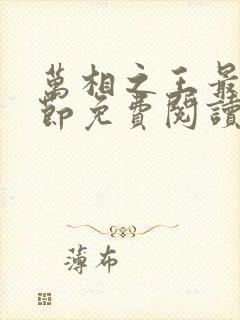 萬相之王最
節免費閱讀
薄布